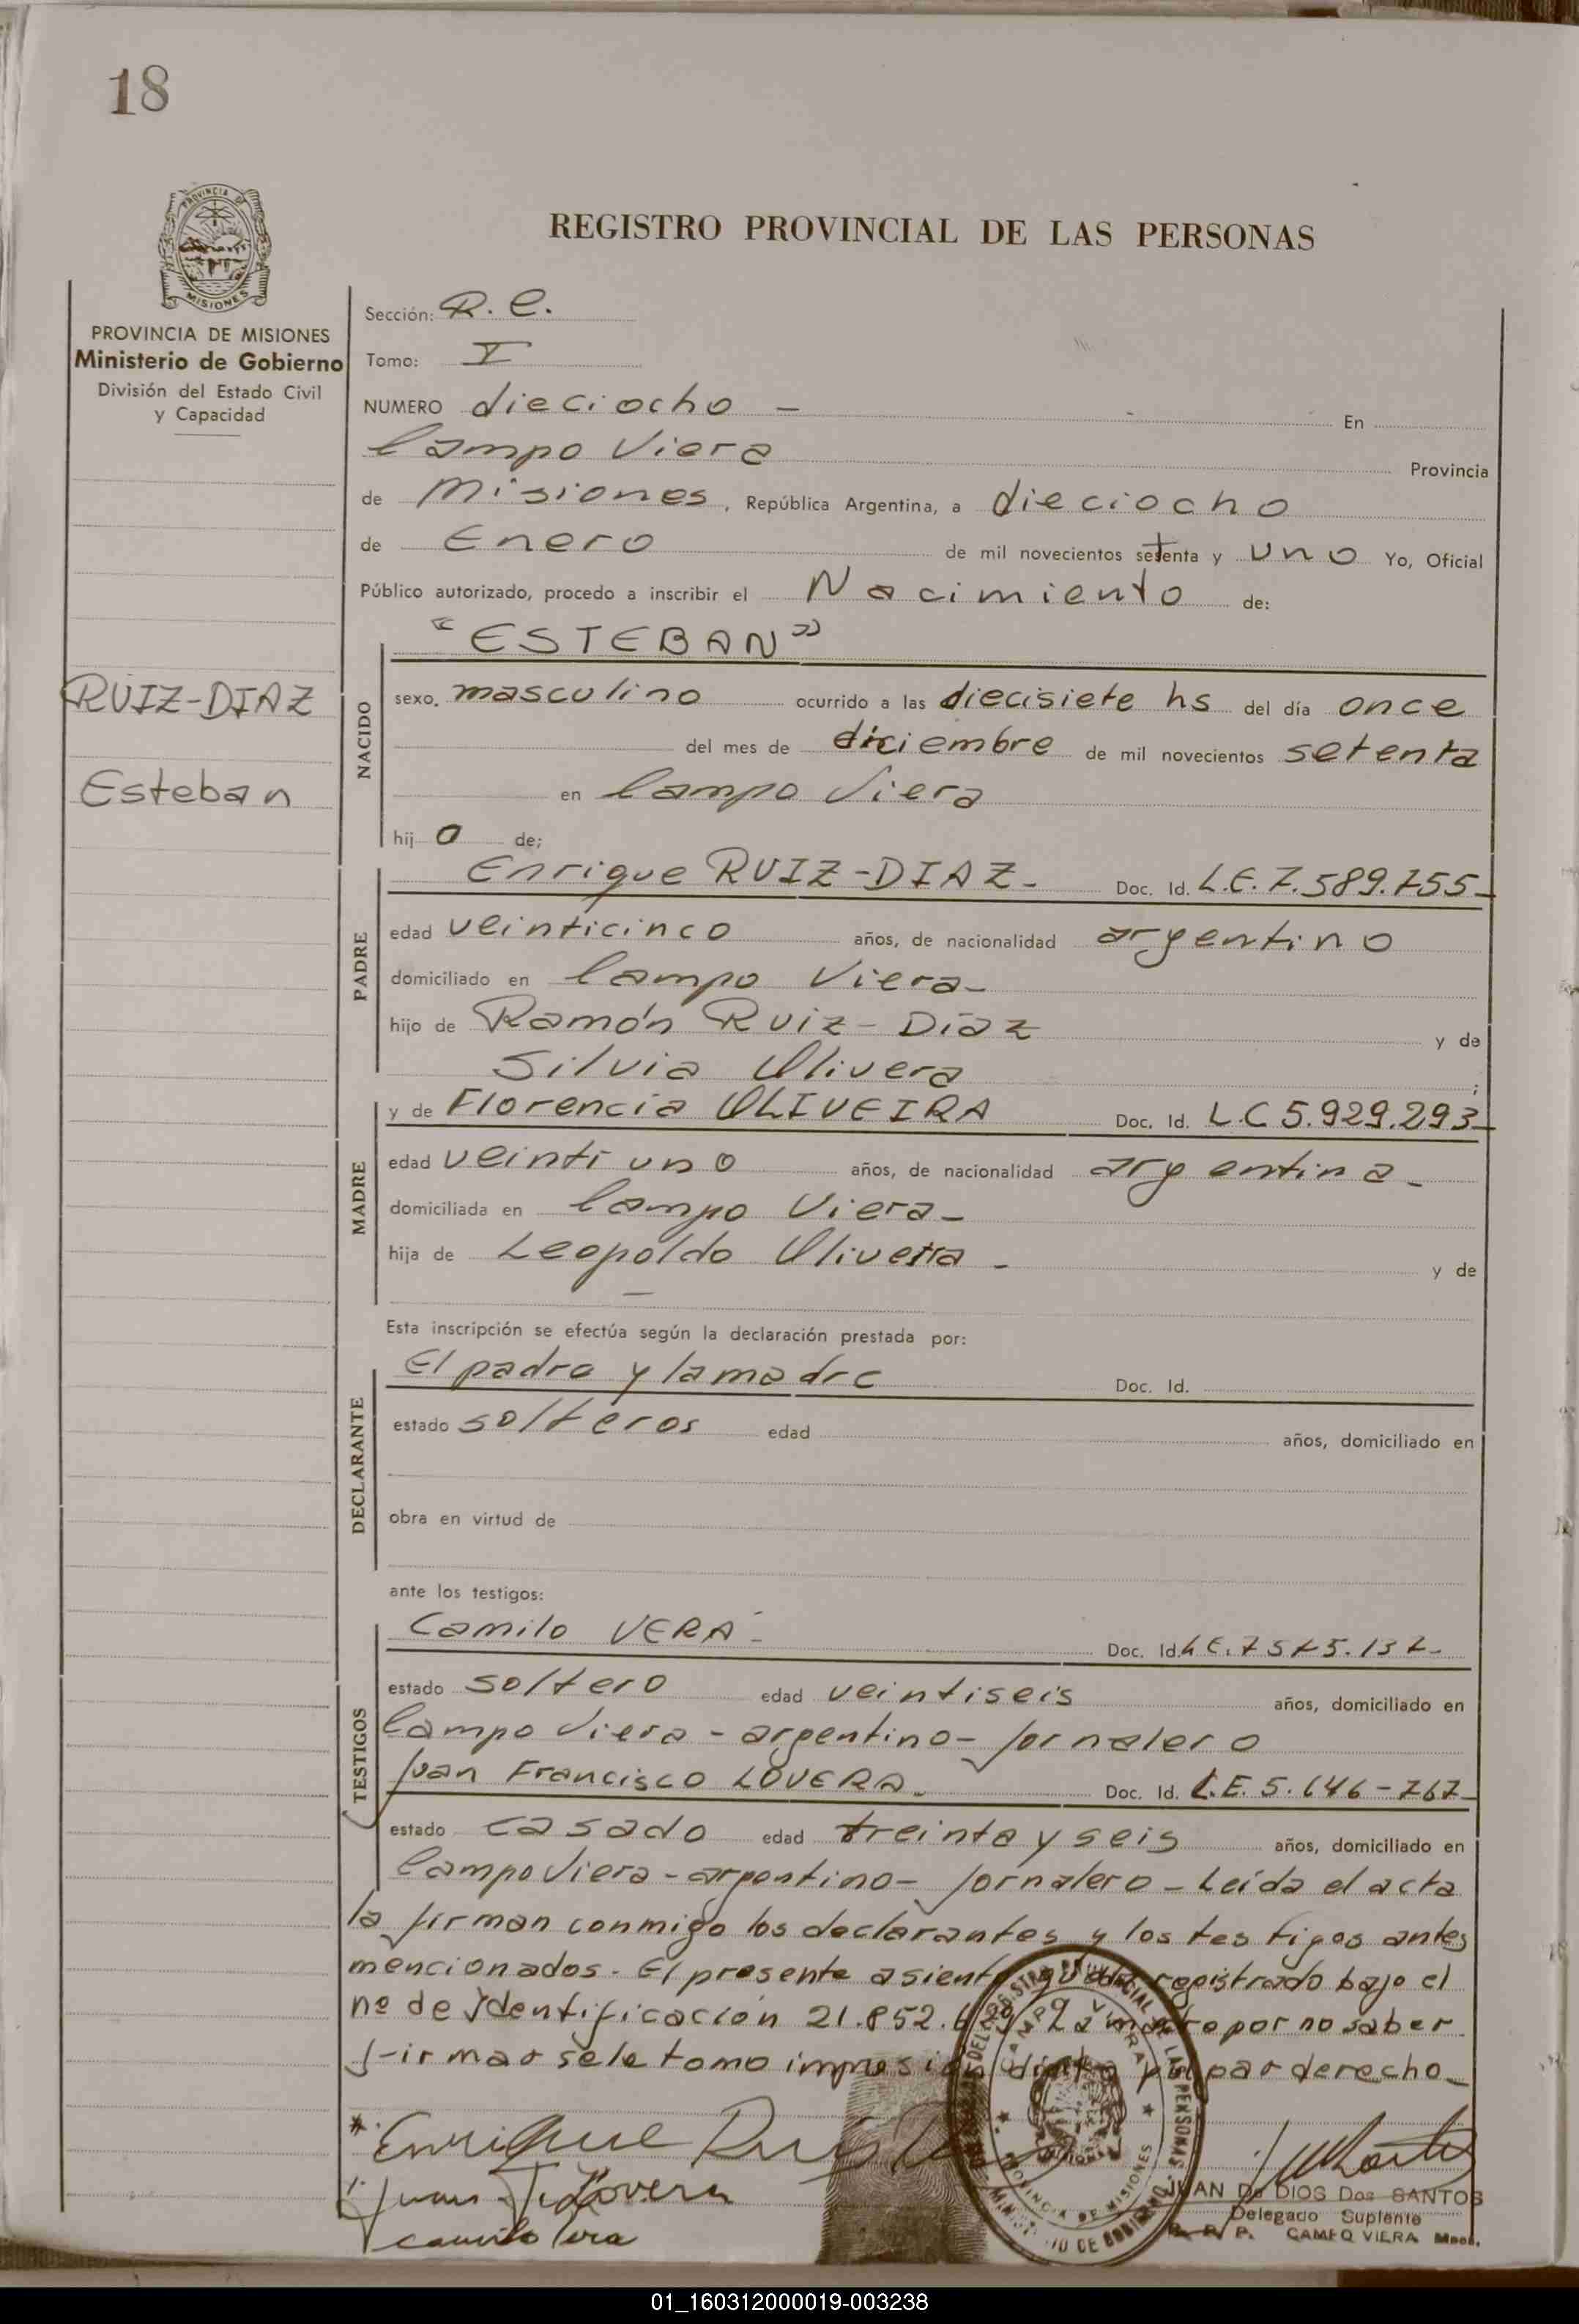 18
PROVINCIA DE
MISIONES
PROVINCIA DE MISIONES
Ministerio de Gobierno
División del Estado Civil
y Capacidad
RUIZ-DIAZ
Esteban
REGISTRO PROVINCIAL DE LAS PERSONAS
Sección: R. C.
Tomo: I
NUMERO dieciocho - En
Campo Viera Provincia
de Misiones, República Argentina, a dieciocho
de Enero de mil novecientos setenta y uno Yo, Oficial
Público autorizado, procedo a inscribir el Nacimiento de:
"ESTEBAN"
NACIDO
sexo. masculino ocurrido a las diecisiete hs del día once
del mes de diciembre de mil novecientos setenta
en Campo Viera
hij o de;
PADRE
Enrique RUIZ-DIAZ- Doc. Id. L.E. 7.589.755-
edad veinticinco años, de nacionalidad argentino
domiciliado en Campo Viera-
hijo de Ramón Ruiz-Díaz y de
Silvia Olivera ;
MADRE
y de Florencia OLIVEIRA Doc. Id. L.C 5.929.293-
edad veinti uno años, de nacionalidad argentina-
domiciliada en Campo Viera-
hija de Leopoldo Oliveira - y de
—
Esta inscripción se efectúa según la declaración prestada por:
DECLARANTE
El padre y la madre Doc. Id.
estado solteros edad años, domiciliado en
obra en virtud de
ante los testigos:
TESTIGOS
Camilo VERA- Doc. Id. L.E.
estado soltero edad veintiseis años, domiciliado en
Campo Viera - argentino- Jornalero
Juan Francisco LOVERA- Doc. Id. L.E. 5.646-767-
estado casado edad treinta y seis años, domiciliado en
Campo Viera - argentino- Jornalero - Leída el acta
la firman conmigo los declarantes y los testigos antes
mencionados. El presente asiento queda registrado bajo el
nº de Identificación 21.852. La madre por no saber
firmar se le tomo impresión digito pulgar derecho-
Enrique Ruiz
Juan F. Lovera
Camilo Vera
REGISTRO PROVINCIAL DE LAS PERSONAS
CAMPO VIERA
PROVINCIA DE MISIONES
JUAN De DIOS Dos SANTOS
Delegado Suplente
R. P. P. CAMPO VIERA Mnes.
01_160312000019-003238